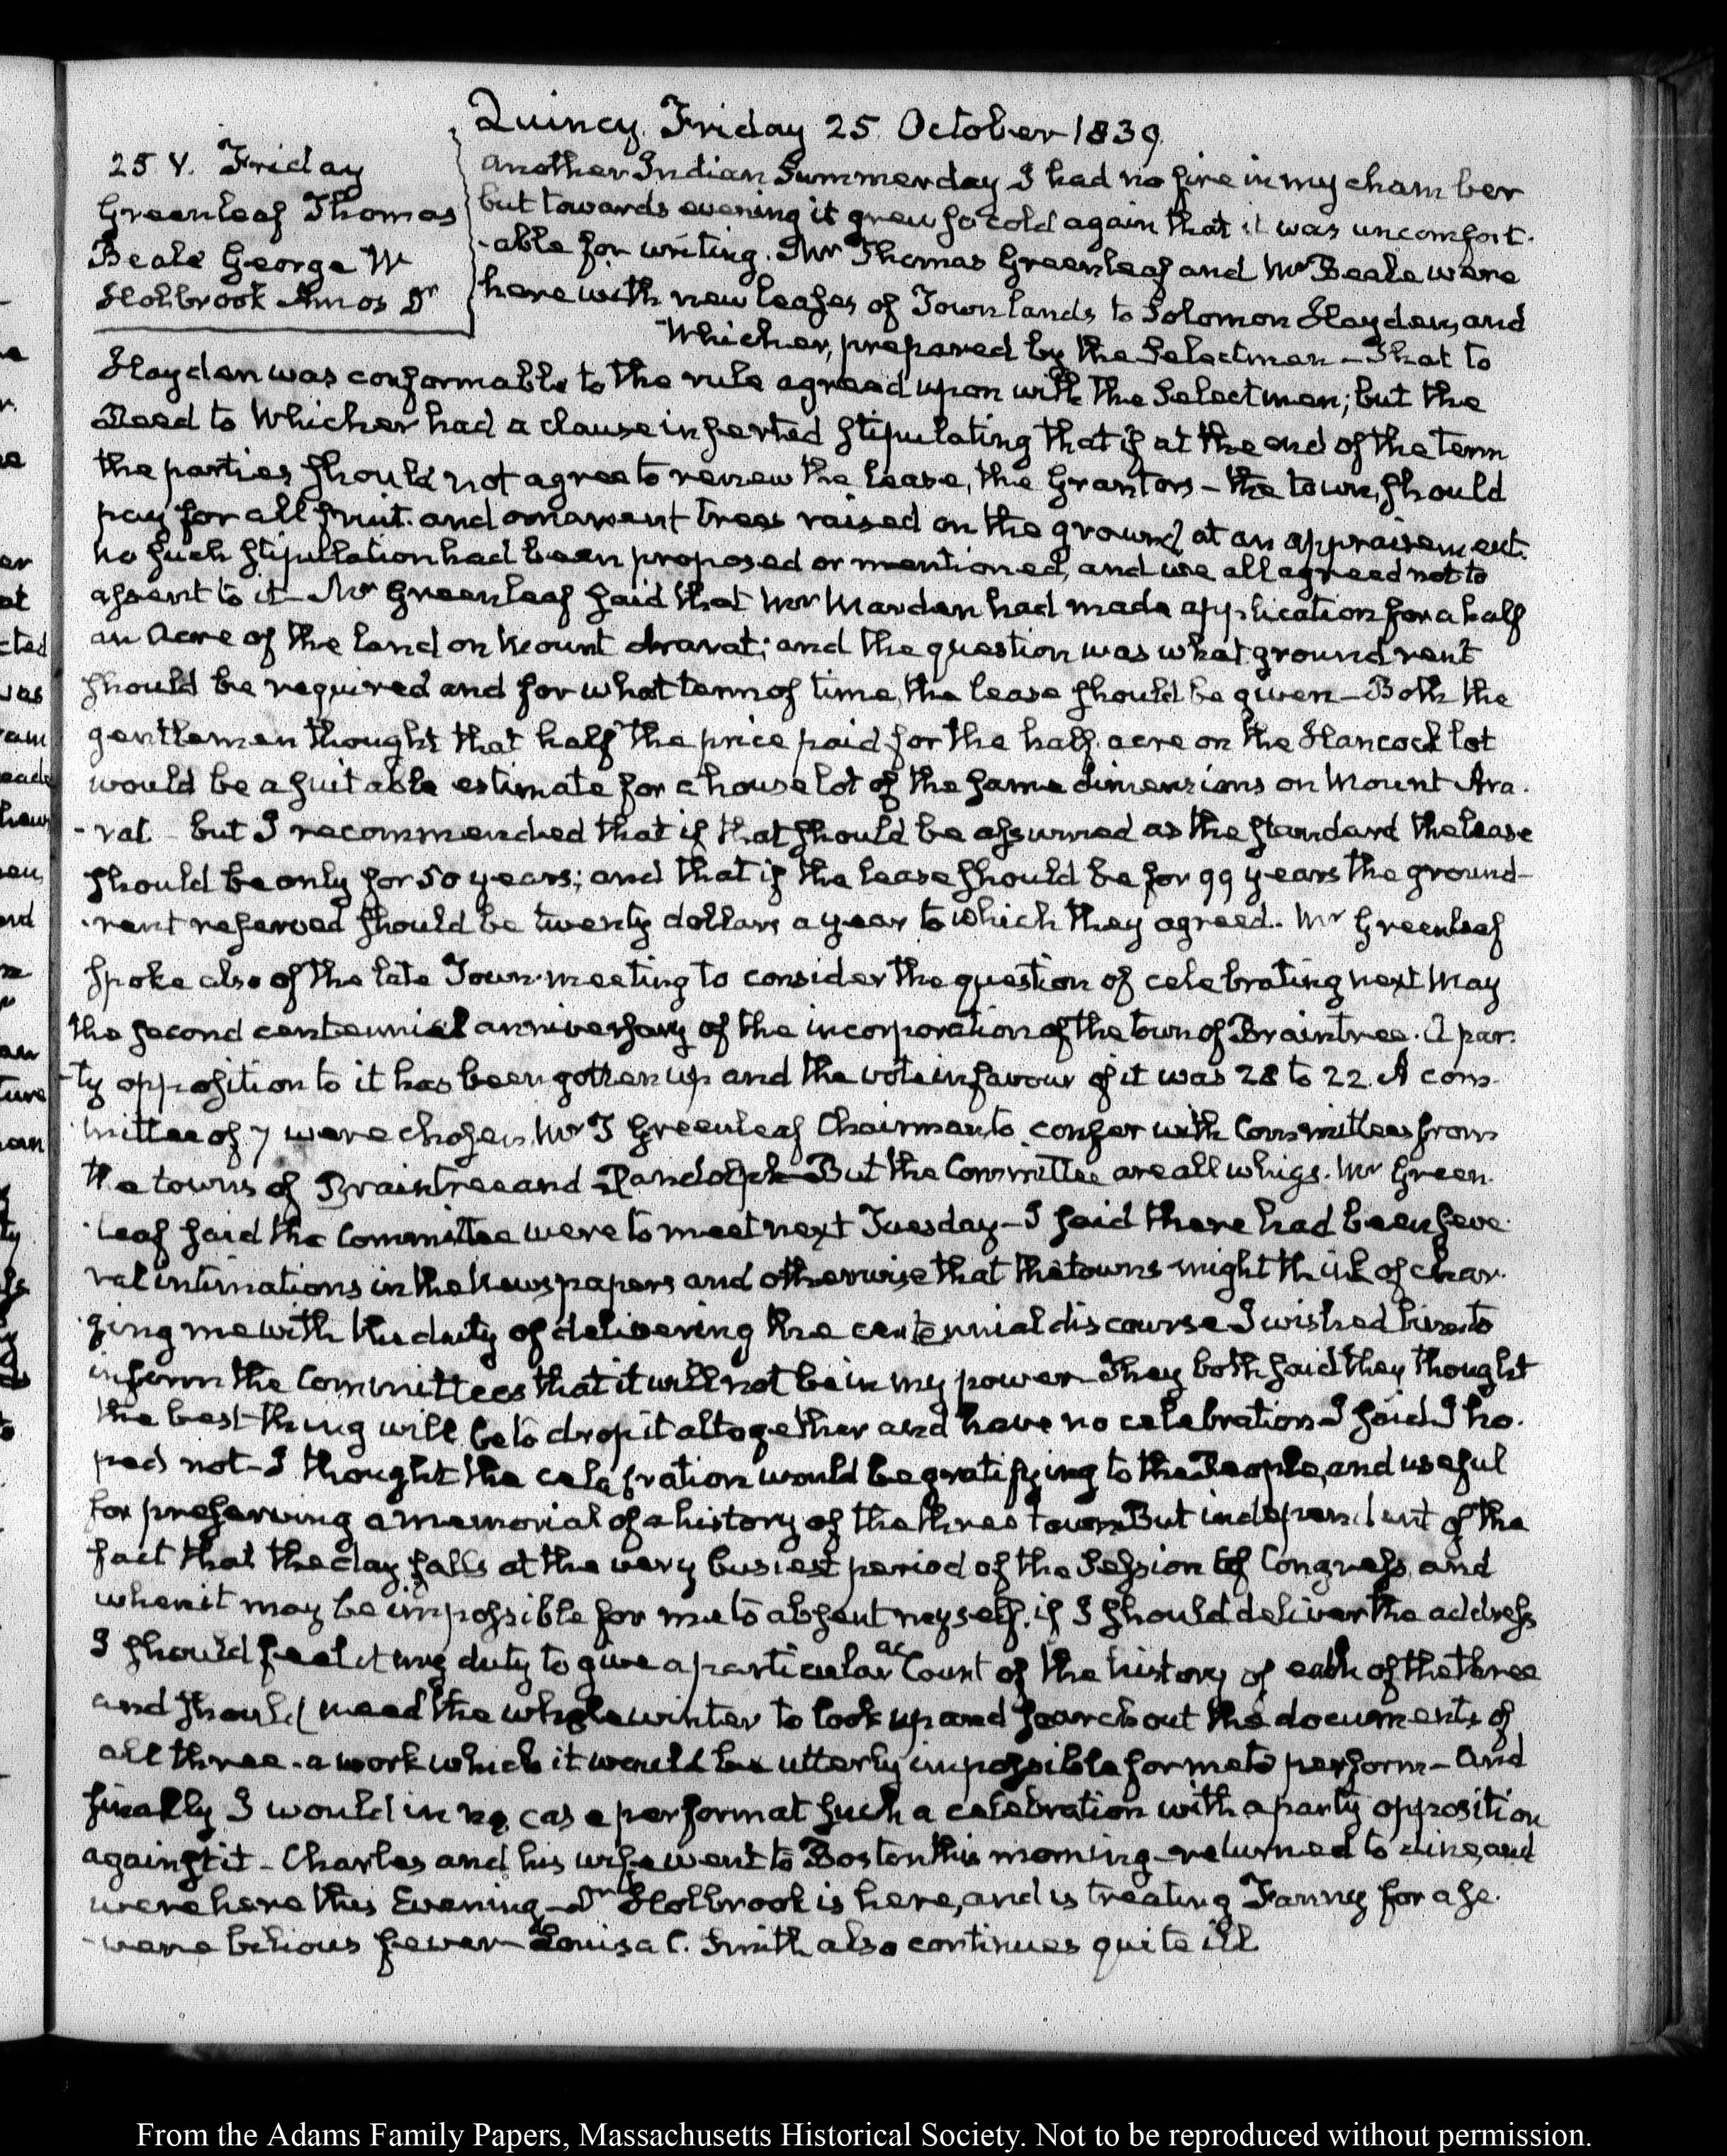 Quincy. Friday 25. October 1839.
25. V. Friday
Greenleaf Thomas
Beale George W
Holbrook Amos Dr
another Indian Summer day I had no fire in my chamber
but towards evening it grew so cold again that it was uncomfort-
-able for writing. Mr Thomas Greenleaf and Mr Beale were
here with new leases of Town lands to Solomon Hayden, and
Whicher, prepared by the Selectmen — That to
Hayden was conformable to the rule agreed upon with the Selectmen; but the
Deed to Whicher had a clause inserted stipulating that if at the end of the term
the parties should not agree to renew the lease, the Grantors — the town, should
pay for all fruit and ornament trees raised on the ground, at an appraisement.
no such stipulation had been proposed or mentioned, and we all agreed not to
assent to it — Mr Greenleaf said that Mr Marden had made application for a half
an Acre of the land on Mount Ararat; and the question was what ground rent
should be required and for what term of time, the lease should be given — Both the
gentlemen thought that half the price paid for the half acre on the Hancock lot
would be a suitable estimate for a house lot of the same dimensions on Mount Ara-
-rat — but I recommended that if that should be assumed as the standard the lease
should be only for 50 years; and that if the lease should be for 99 years the ground-
-rent reserved should be twenty dollars a year to which they agreed. Mr Greenleaf
spoke also of the late Town-meeting to consider the question of celebrating next May
the second centennial anniversary of the incorporation of the town of Braintree. A par-
-ty opposition to it has been gotten up and the vote in favour of it was 28 to 22. A com-
mittee of 7 were chosen, Mr T Greenleaf Chairman, to confer with Committees from
the towns of Braintree and Randolph — But the Committee are all whigs. Mr Green-
-leaf said the Committee were to meet next Tuesday — I said there had been seve-
ral intimations in the Newspapers and otherwise that the towns might think of char-
-ging me with the duty of delivering the centennial discourse I wished him to
inform the Committees that it will not be in my power — They both said they thought
the best thing will be to drop it altogether and have no celebration I said I ho-
ped not — I thought the celebration would be gratifying to the People, and useful
for preserving a memorial of a history of the three towns But independent of the
fact that the day falls at the very busiest period of the Session of Congress, and
when it may be impossible for me to absent myself, if I should deliver the address
I should feel it my duty to give a particular account of the history of each of the three
and should need the whole winter to look up and search out the documents of
all three — a work which it would be utterly impossible for me to perform — And
finally I would in no case perform at such a celebration with a party opposition
against it — Charles and his wife went to Boston this morning — returned to dine, and
were here this Evening — Dr Holbrook is here, and is treating Fanny for a se-
-vere bilious fever — Louisa C. Smith also continues quite ill
From the Adams Family Papers, Massachusetts Historical Society. Not to be reproduced without permission.